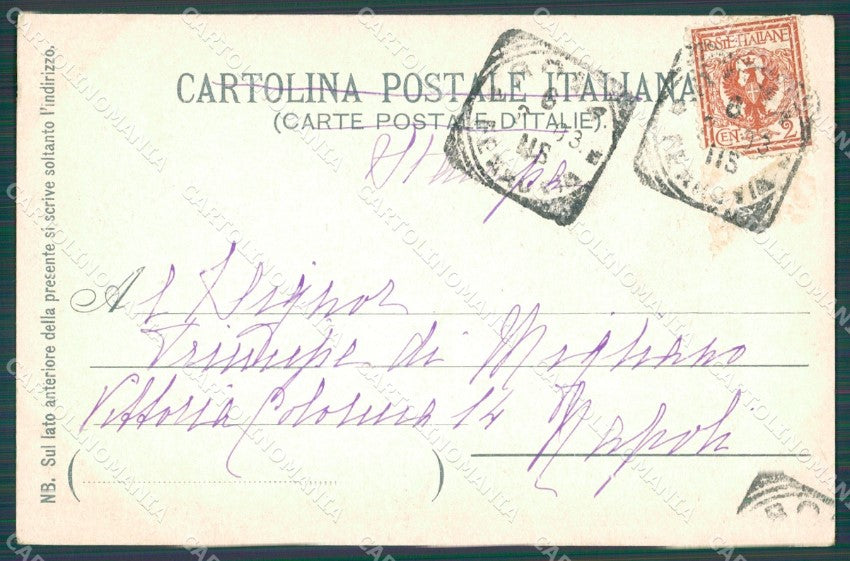 CARTOLINA POSTALE ITALIANA
(CARTE POSTALE D'ITALIE).
POSTE ITALIANE
CEN. 2
Stampe
Al Signor
Principe di Migliano
Vittoria Colonna 14
Napoli
NB. Sul lato anteriore della presente si scrive soltanto l'indirizzo.
CARTOLINOMANIA